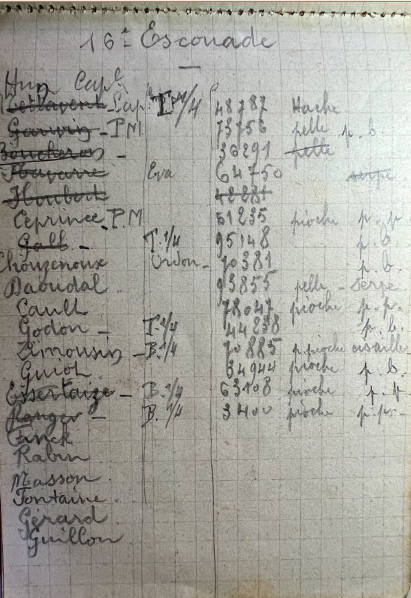 16e Escouade
Huy Capl
Cap I 1/4 48787 Hache
Gauvin - P.M 73756 pelle p.b.
Boucheron - 36291 pelle
Eva 64750 serpe
Houbert 42281
Leprince P.M 51235 pioche p.p.
Gall - T.1/4 95148 p.b.
Chouzenoux Ordon- 70381 p.b.
Daoudal 93855 pelle - serpe
Cault 78047 pioche p.p.
Godon - T.1/4 44238 p.b.
Limousin - B.1/4 70885 p.pioche cisaille
Guioh 34944 pioche p.b.
Essertaize - B.1/4 63108 pioche p.p.
Ranger - B.1/4 3400 pioche p.p.-
Finck
Rabin
Masson
Fontaine
Gérard
Guillon